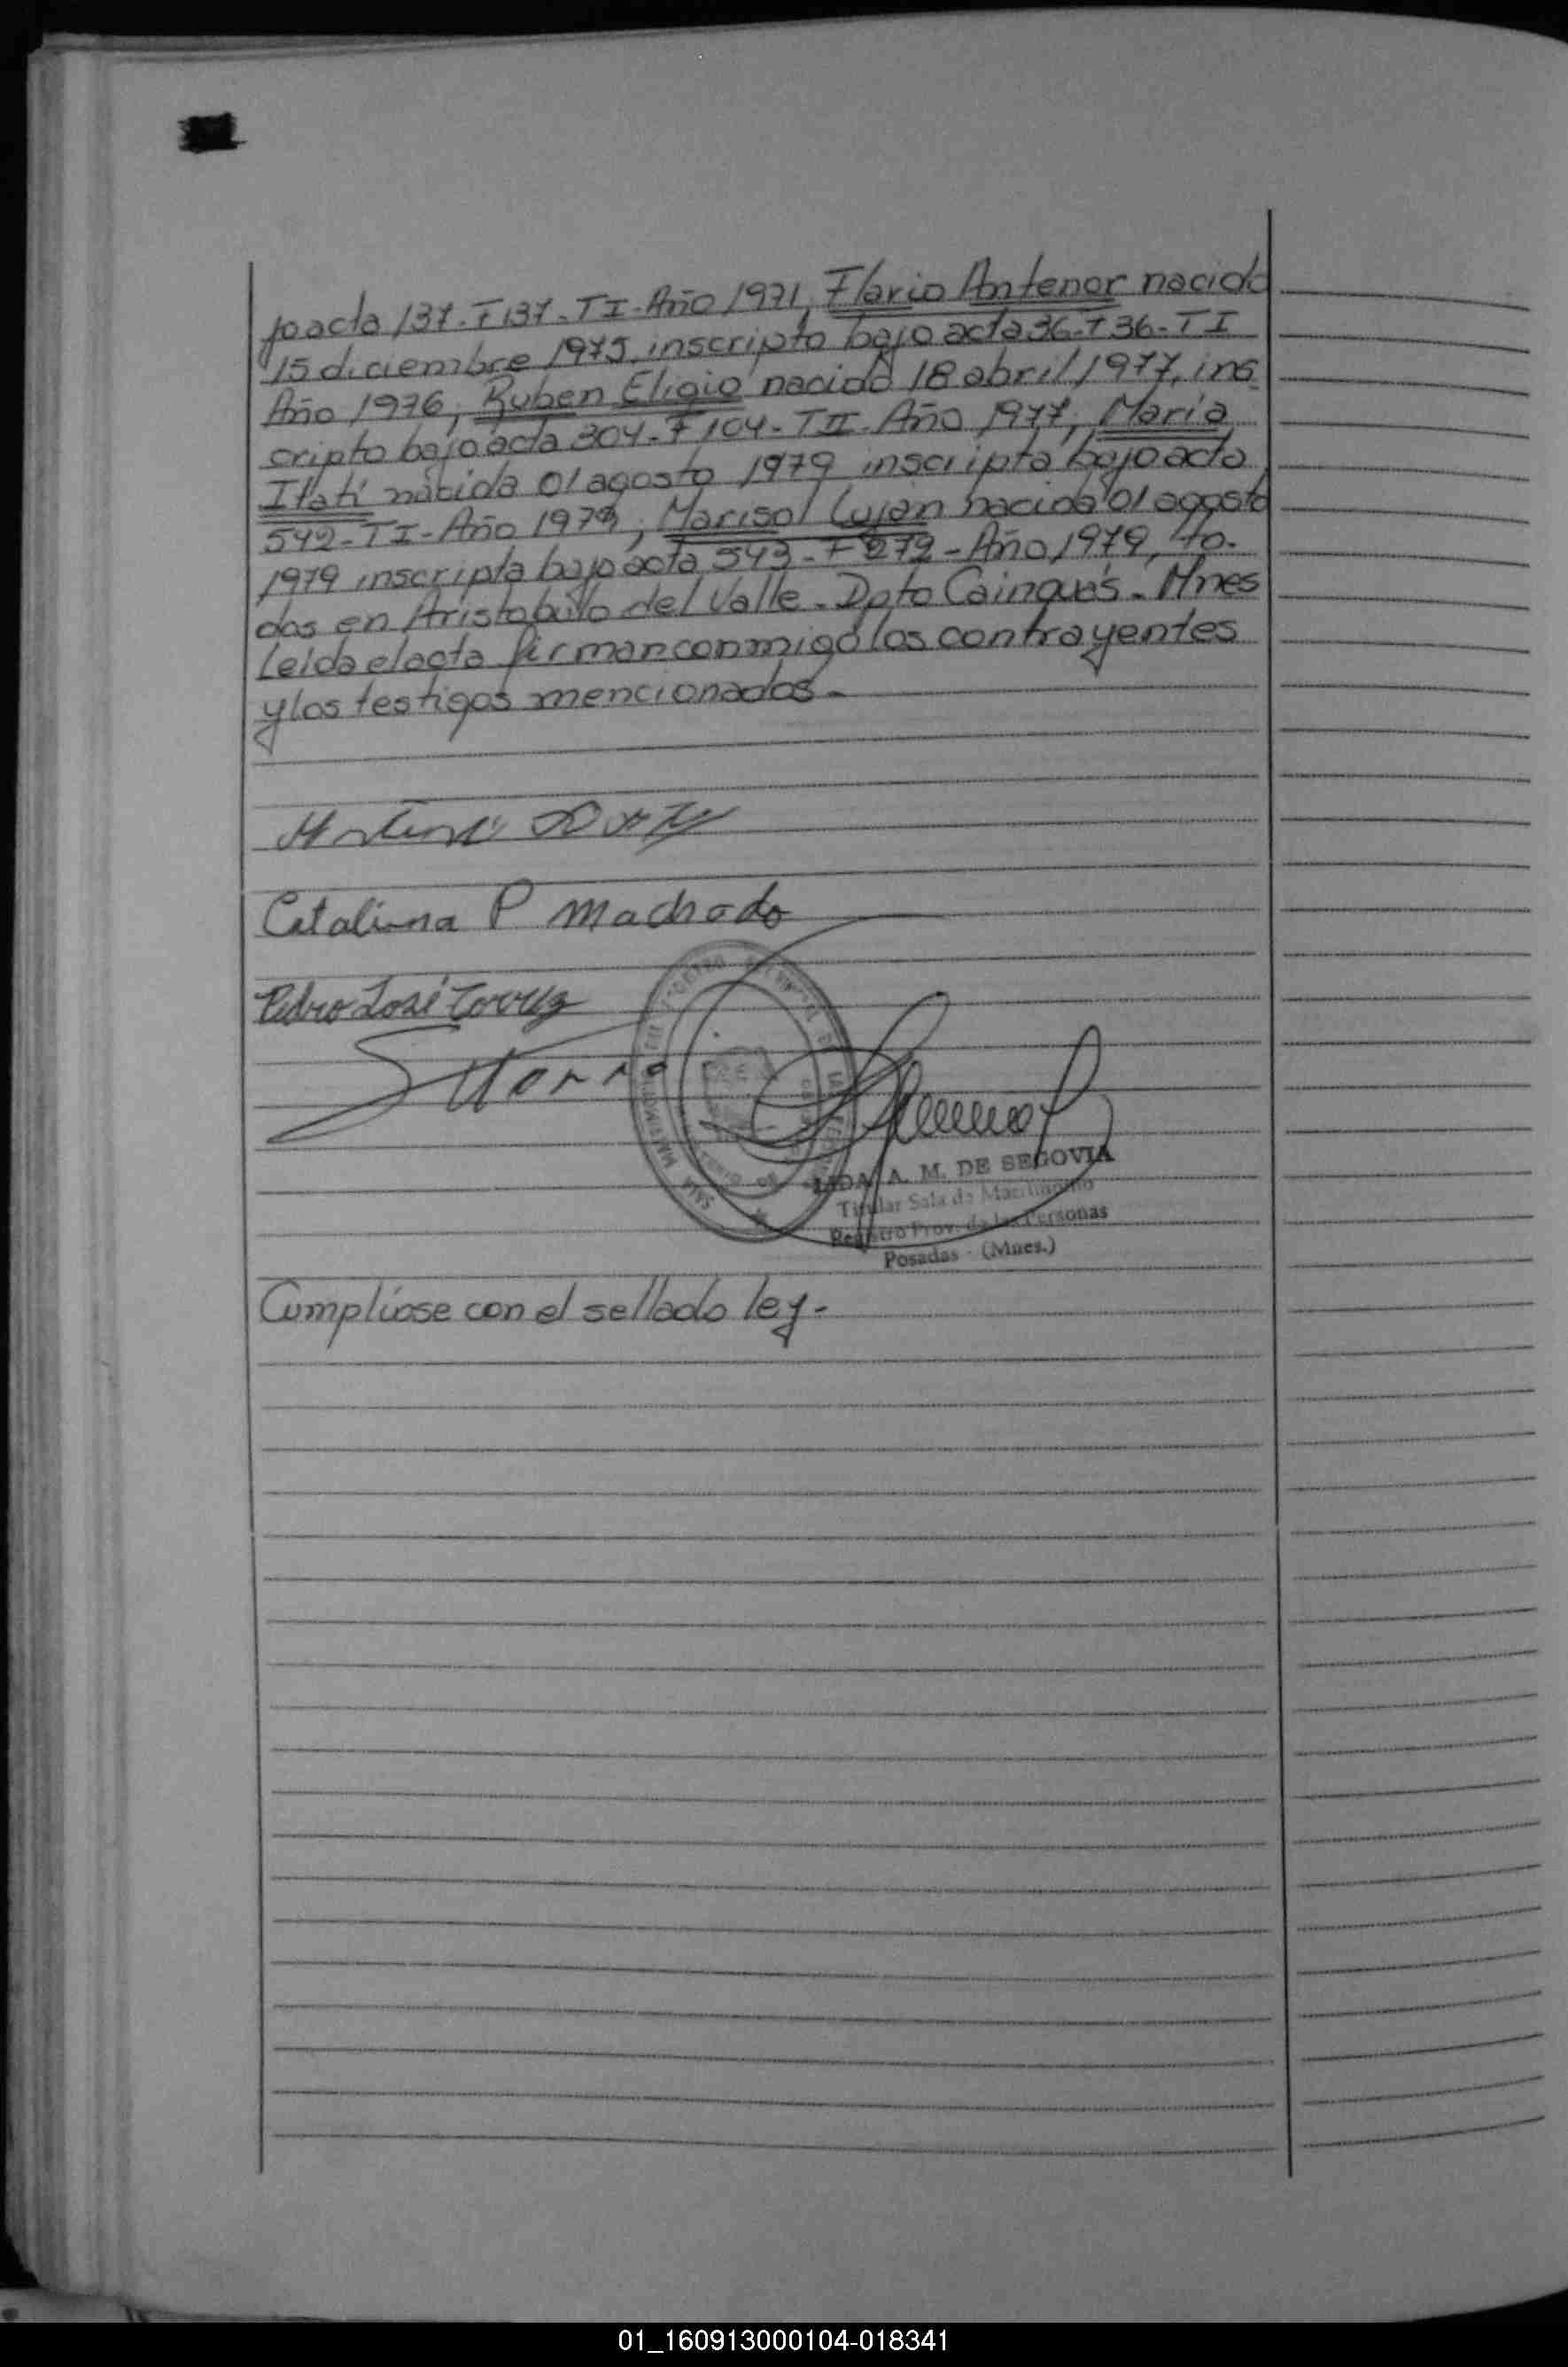 jo acta 137-F137-TI-Año 1971, Flavio Antenor nacido
15 diciembre 1975, inscripto bajo acta 36-F36-TI
Año 1976, Ruben Eligio nacido 18 abril 1977, ins
cripto bajo acta 304-F104-TII-Año 1977, Maria
Itatí nacida 01 agosto 1979 inscripta bajo acta
542-TI-Año 1979, Marisol Lujan nacida 01 agosto
1979 inscripta bajo acta 543-F272-Año 1979, to-
dos en Aristobulo del Valle-Dpto Cainguás-Mnes
Leida el acta firman conmigo los contrayentes
y los testigos mencionados-
Catalina P Machado
Pedro José
A. M. DE SEGOVIA
Titular Sala de Matrimonio
Registro Prov. de las Personas
Posadas - (Mnes.)
Cumplíose con el sellado ley-
01_160913000104-018341